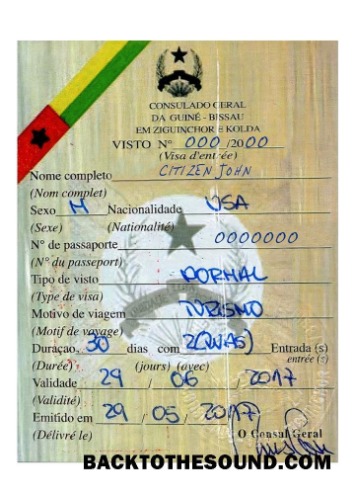 CONSULADO GERAL
DA GUINÉ - BISSAU
EM ZIGUINCHOR e KOLDA
VISTO N° 000 /2000
(Visa d'entrée)
Nome completo CITIZEN JOHN
(Nom complet)
Sexo M Nacionalidade USA
(Sexe) (Nationalité)
N° de passaporte 0000000
(N° du passeport)
Tipo de visto NORMAL
(Type de visa)
Motivo de viagem TURISMO
(Motif de voyage)
Duraçao 30 dias com 2(DUAS) Entrada (s)
(Durée) (jours) (avec) entrée (s)
Validade 29 / 06 / 2017
(Validité)
Emitido em 29 / 05 / 2017
(Délivré le) O Consul Geral
BACKTOTHESOUND.COM